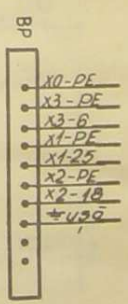 BP
X0-PE
X3-PE
X3-6
X1-PE
X1-25
X2-PE
X2-18